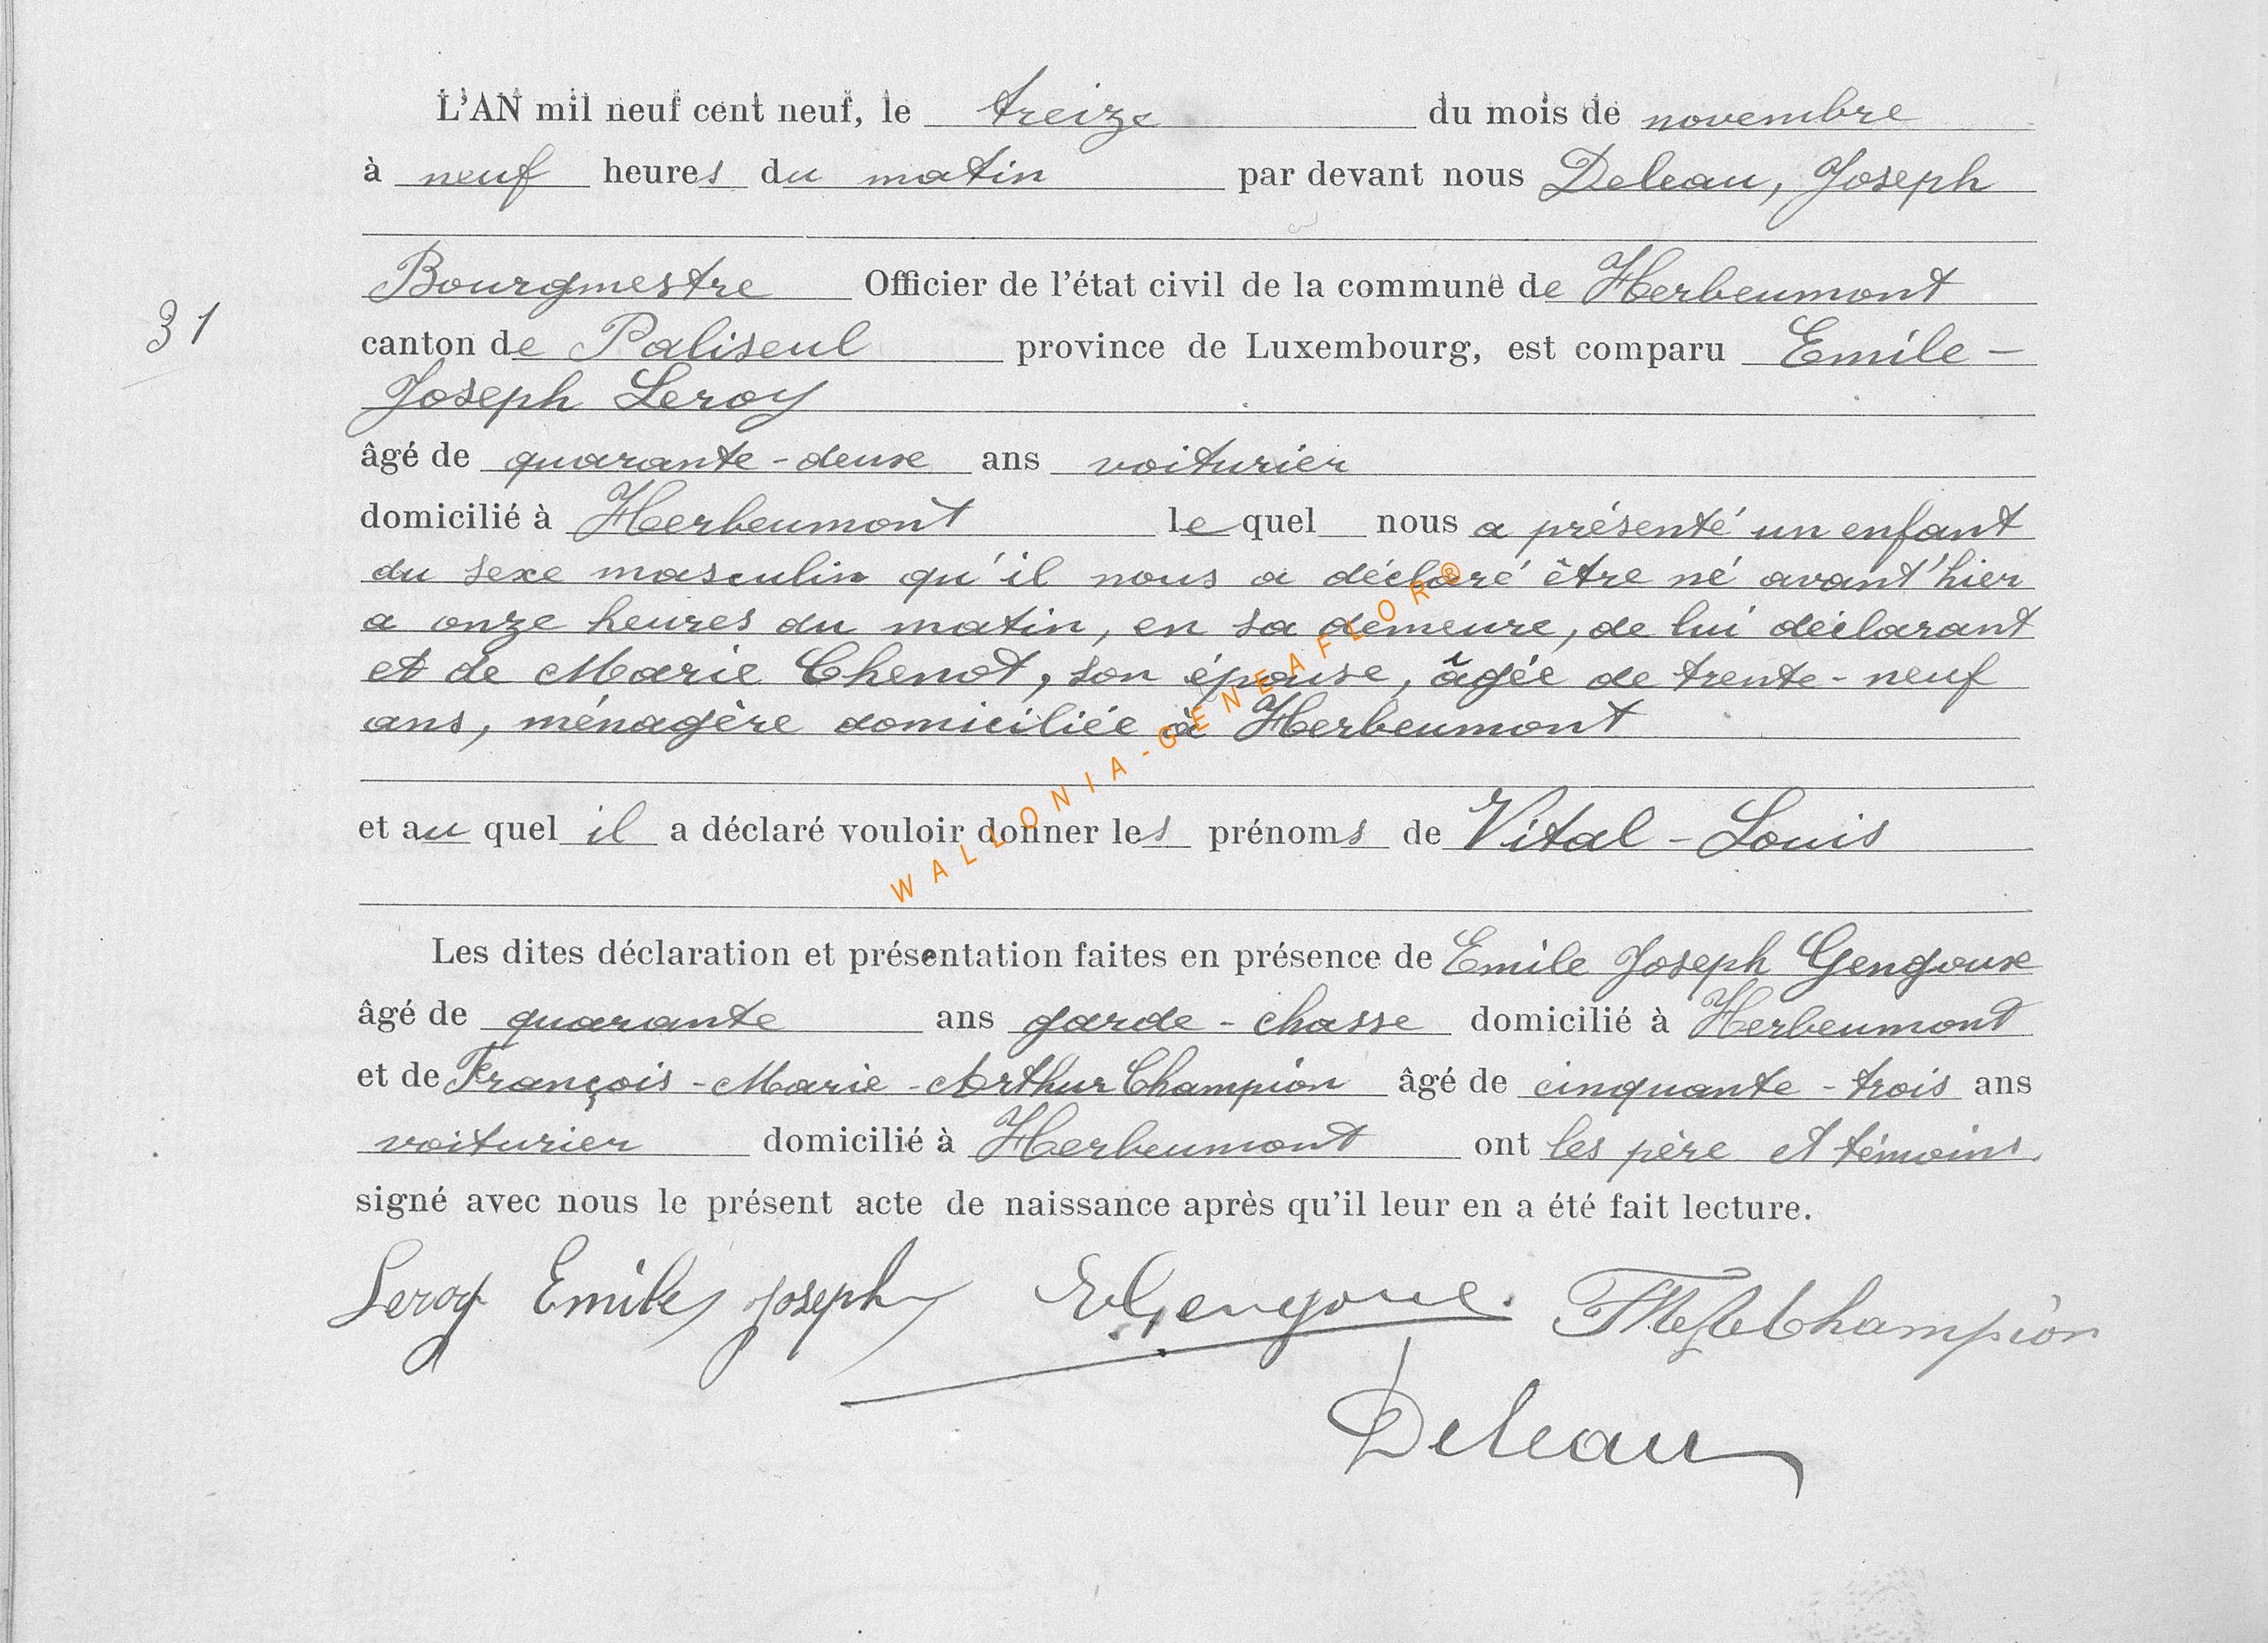 L'AN mil neuf cent neuf, le treize du mois de novembre
à neuf heures du matin par devant nous Deleau, Joseph
Bourgmestre Officier de l'état civil de la commune de Herbeumont
31
canton de Paliseul province de Luxembourg, est comparu Emile-
Joseph Leroy
âgé de quarante-deux ans voiturier
domicilié à Herbeumont le quel nous a présenté un enfant
du sexe masculin qu'il nous a déclaré être né avant'hier
a onze heures du matin, en sa demeure, de lui déclarant
et de Marie Chenot, son épouse, âgée de trente-neuf
ans, ménagère domiciliée à Herbeumont
et au quel il a déclaré vouloir donner les prénoms de Vital-Louis
WALLONIA-GENEAFLOR®
Les dites déclaration et présentation faites en présence de Emile Joseph Gengoux
âgé de quarante ans garde-chasse domicilié à Herbeumont
et de François-Marie-Arthur Champion âgé de cinquante-trois ans
voiturier domicilié à Herbeumont ont les père et témoins
signé avec nous le présent acte de naissance après qu'il leur en a été fait lecture.
Leroy Emile Joseph EGengoux. Champion
Deleau